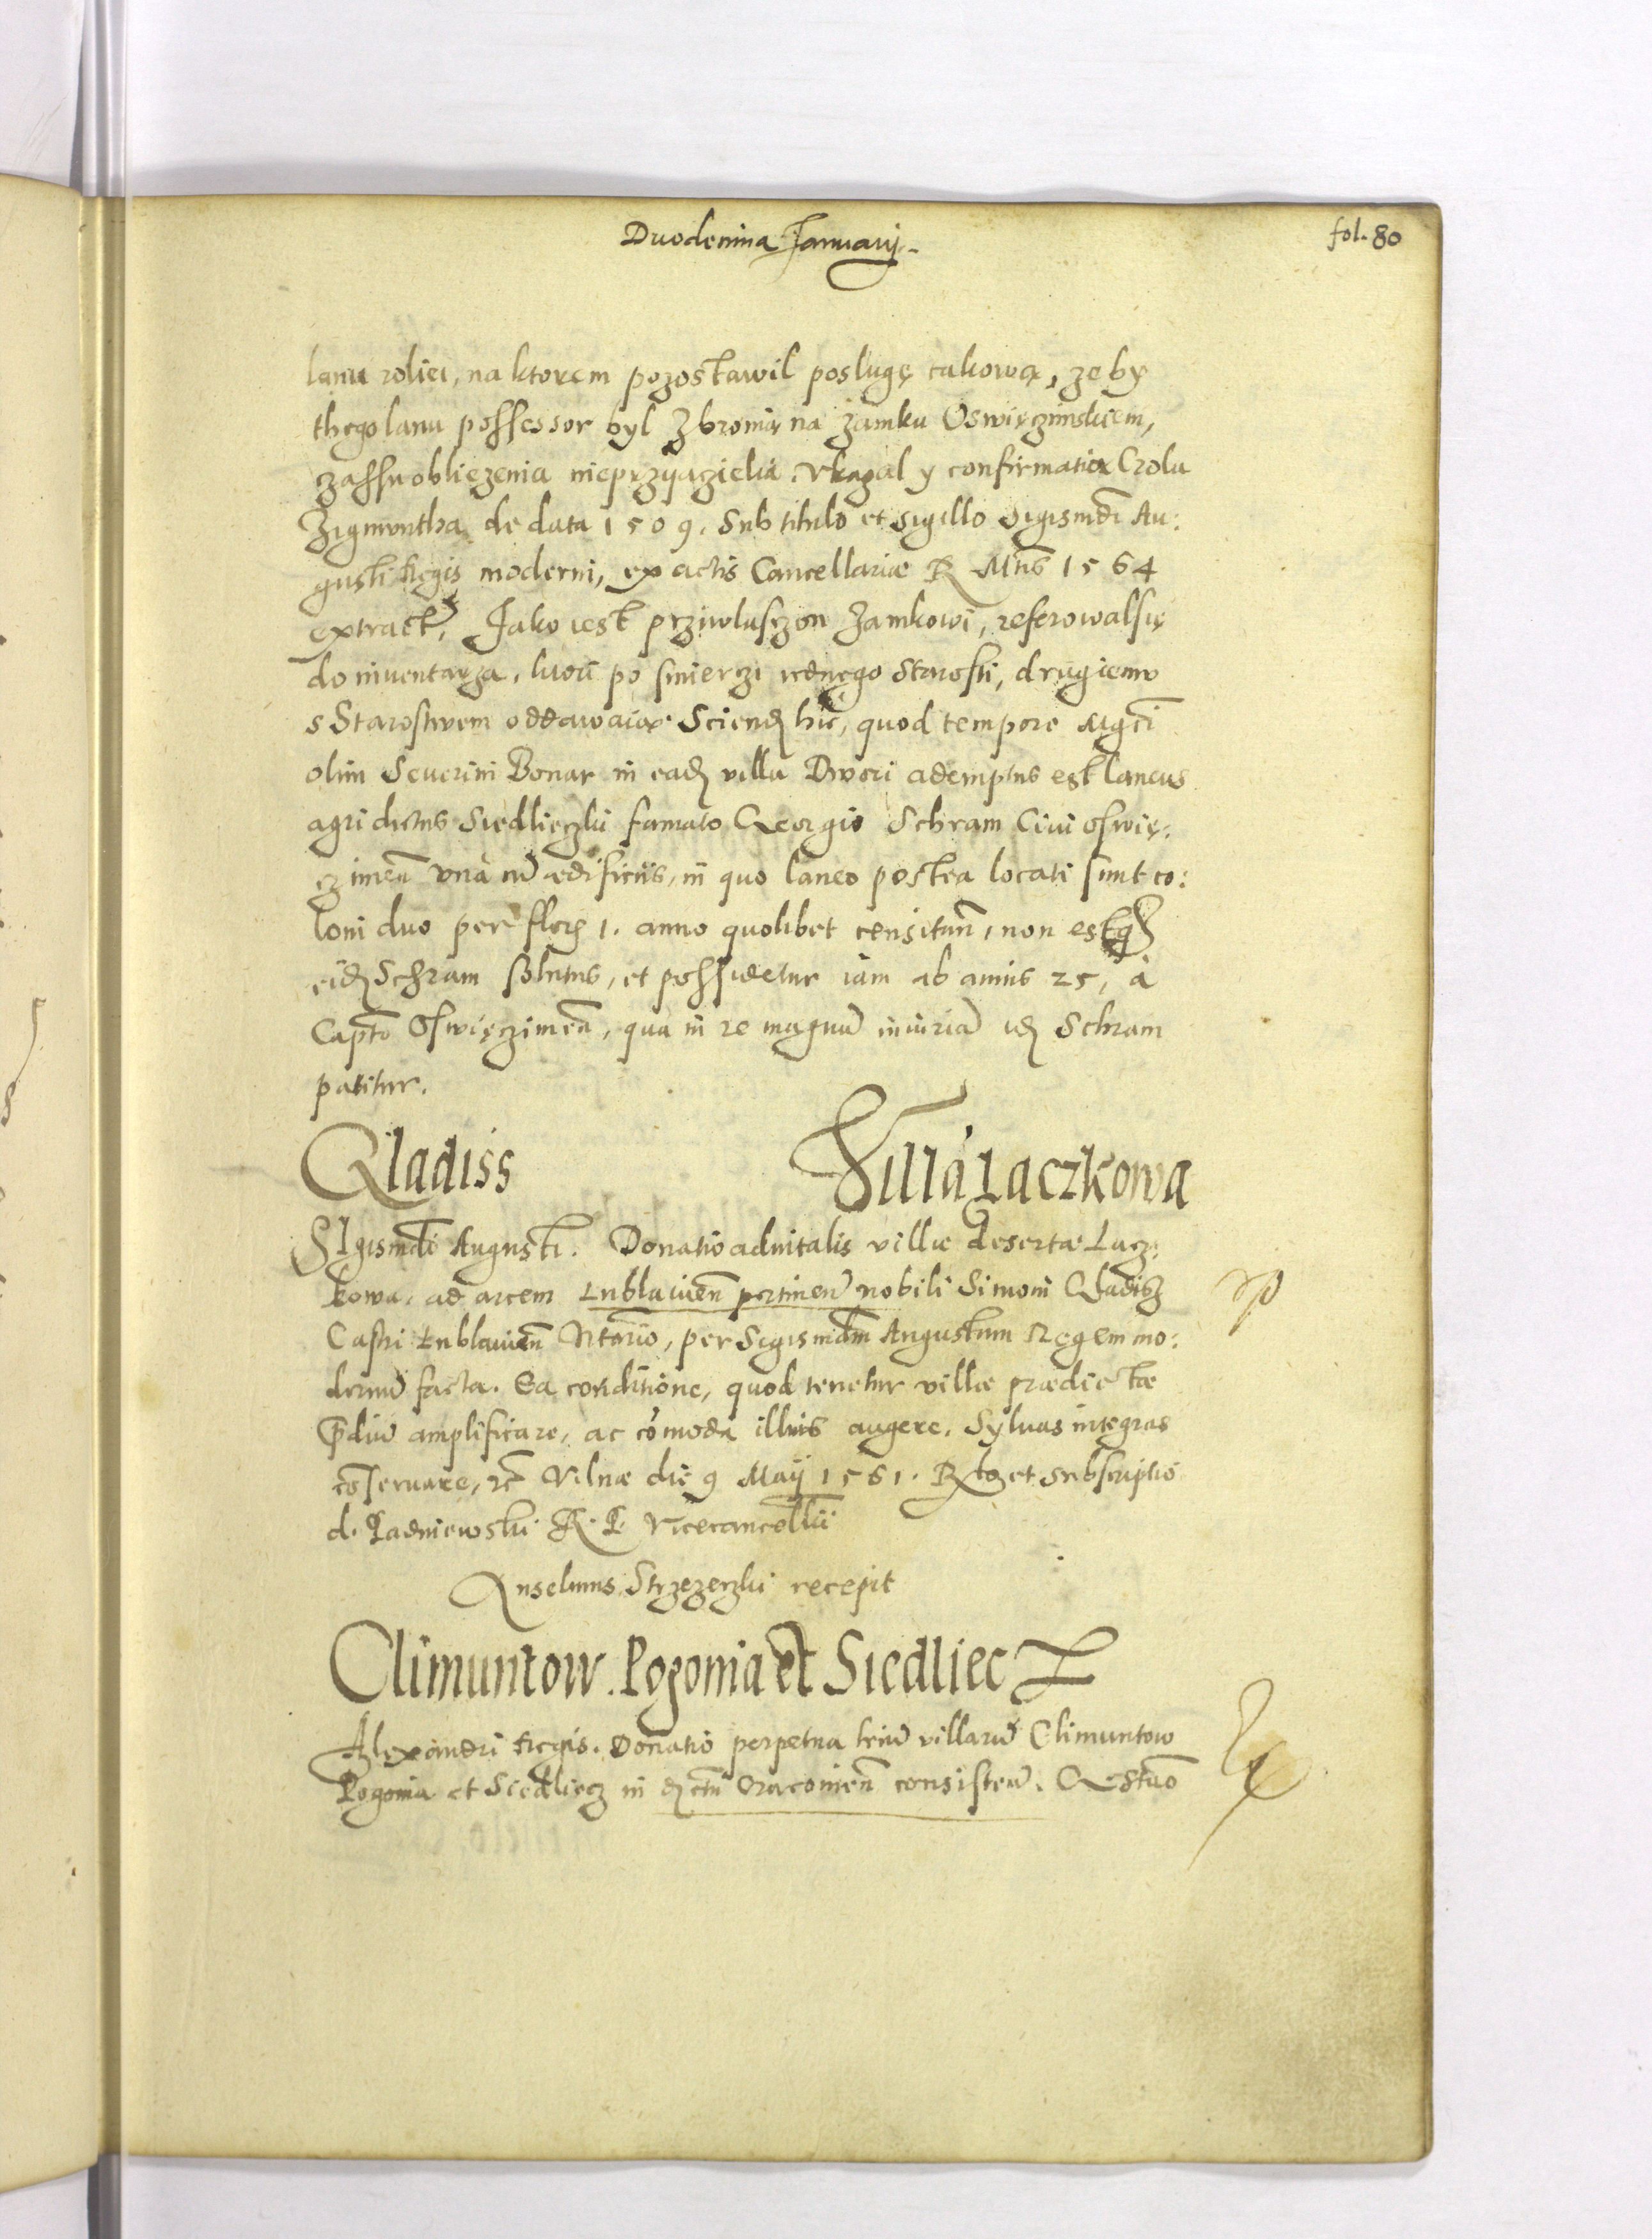 Duodecima Januarij.
fol. 80
lanu roliei, na ktorem pozostawil poslugę takową, zeby
thego lanu possessor byl z bronią na zamku Oswięczimskiem,
czassu oblięzenia nieprzyiazielia. Vkazal y confirmatią Crola
Zigmuntha de data 1509. Sub titulo et sigillo Sigismdi Au:
gusti Regis moderni, ex actis Cancellariæ R Mtis 1564
extract. Jako iest prziwlasczon Zamkowi, referowalsię
do inuentarza, ktori po smierczi iednęgo Starosti, drugiemu
s Starostwem oddawaią. Sciend hic, quod tempore Mgci
olim Seuerini Bonar in ead villa Dwori ademptus est laneus
agri dictus Siedlieczki famato Georgio Schram Ciui Oswię:
czimen vna cu ædificiis, in quo laneo postea locati sunt co:
loni duo per flor 1. anno quolibet censitan, non estq
eid Schram solutus, et possidetur iam ab annis 25, à
Capto Oswięczimen, qua in re magna iniuria id Schram
patitur.
Gladiss Villa Laczkowa
SIgismdi Augusti. Donatio aduitalis villæ desertæ Lacz:
kowa, ad arcem Lublauien pertinen nobili Simoni Gladisz
Castri Lublauien Ntario, per Sigismdm Augustum Regem mo:
dernu facta. Ea conditione, quod tenetur villæ prædictæ
pdiu amplificare, ac comoda illius augere. Syluas integras
conseruare, etc Vilnæ die 9 Maij 1561. Rta et subscriptio
d. Padniewski R. P. Vicecancellrii
Anselmus Strzezerzki recepit
Climuntow. Pogonia et Siedliec
Alexandri Regis. Donatio perpetua triu villaru Climuntow
Pogonia et Siedliecz in dctu Cracouien consisten. Gestavo